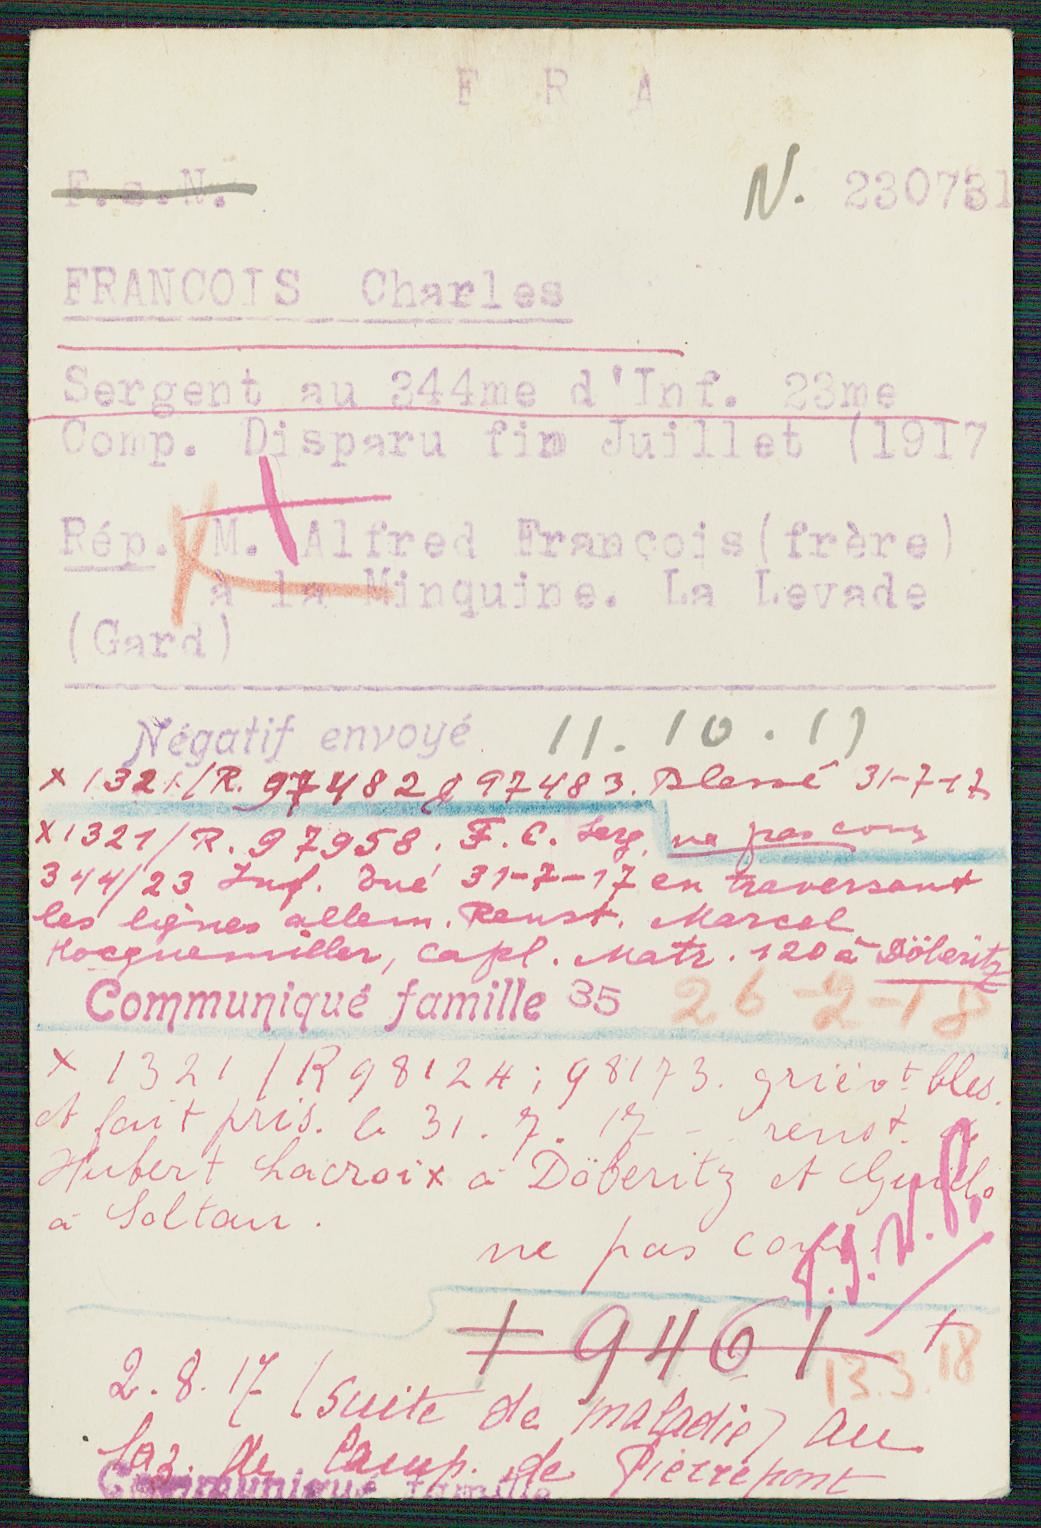 F R A
F.c.N.
N. 230731
FRANCOIS Charles
Sergent au 344me d'Inf. 23me
Comp. Disparu fin Juillet (1917
Rép. M. Alfred François(frère)
à la Minquine. La Levade
(Gard)
Négatif envoyé 11.10.17
x 1321/R. 97482 & 97483. Blessé 31-7-17
x 1321/R. 97958. F. C. Serg. ne pas com
344/23 Inf. Tué 31-7-17 en traversant
les lignes allem. Renst. Marcel
Hocquemiller, Capl. Matr. 120 à Döberitz
Communiqué famille 35 26-2-18
x 1321/R 98124; 98173. grièvt bles.
et fait pris. le 31.7.17 - renst. de
Hubert Lacroix à Döberitz et
à Soltau.
ne pas com.
+ 9461 +
13.3.18
2.8.17 (suite de maladie) au
Laz. de Camp. de Pierrepont
Communiqué famille